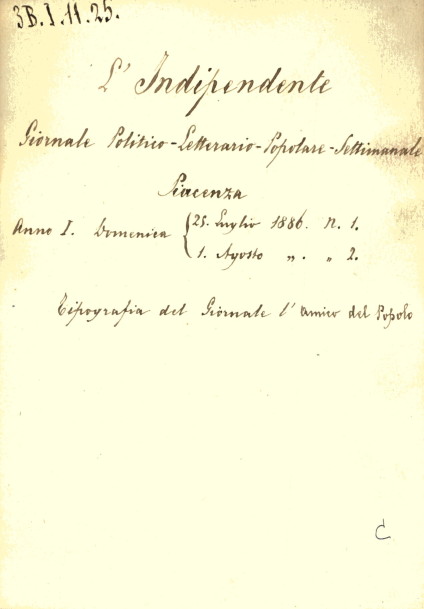 3B.I.11.25.
L' Indipendente
Giornale Politico-Letterario-Popolare-Settimanale
Piacenza
Anno I. Domenica { 25. Luglio 1886. N. 1.
1. Agosto „. „ 2.
Tipografia del Giornale l'amico del Popolo
C